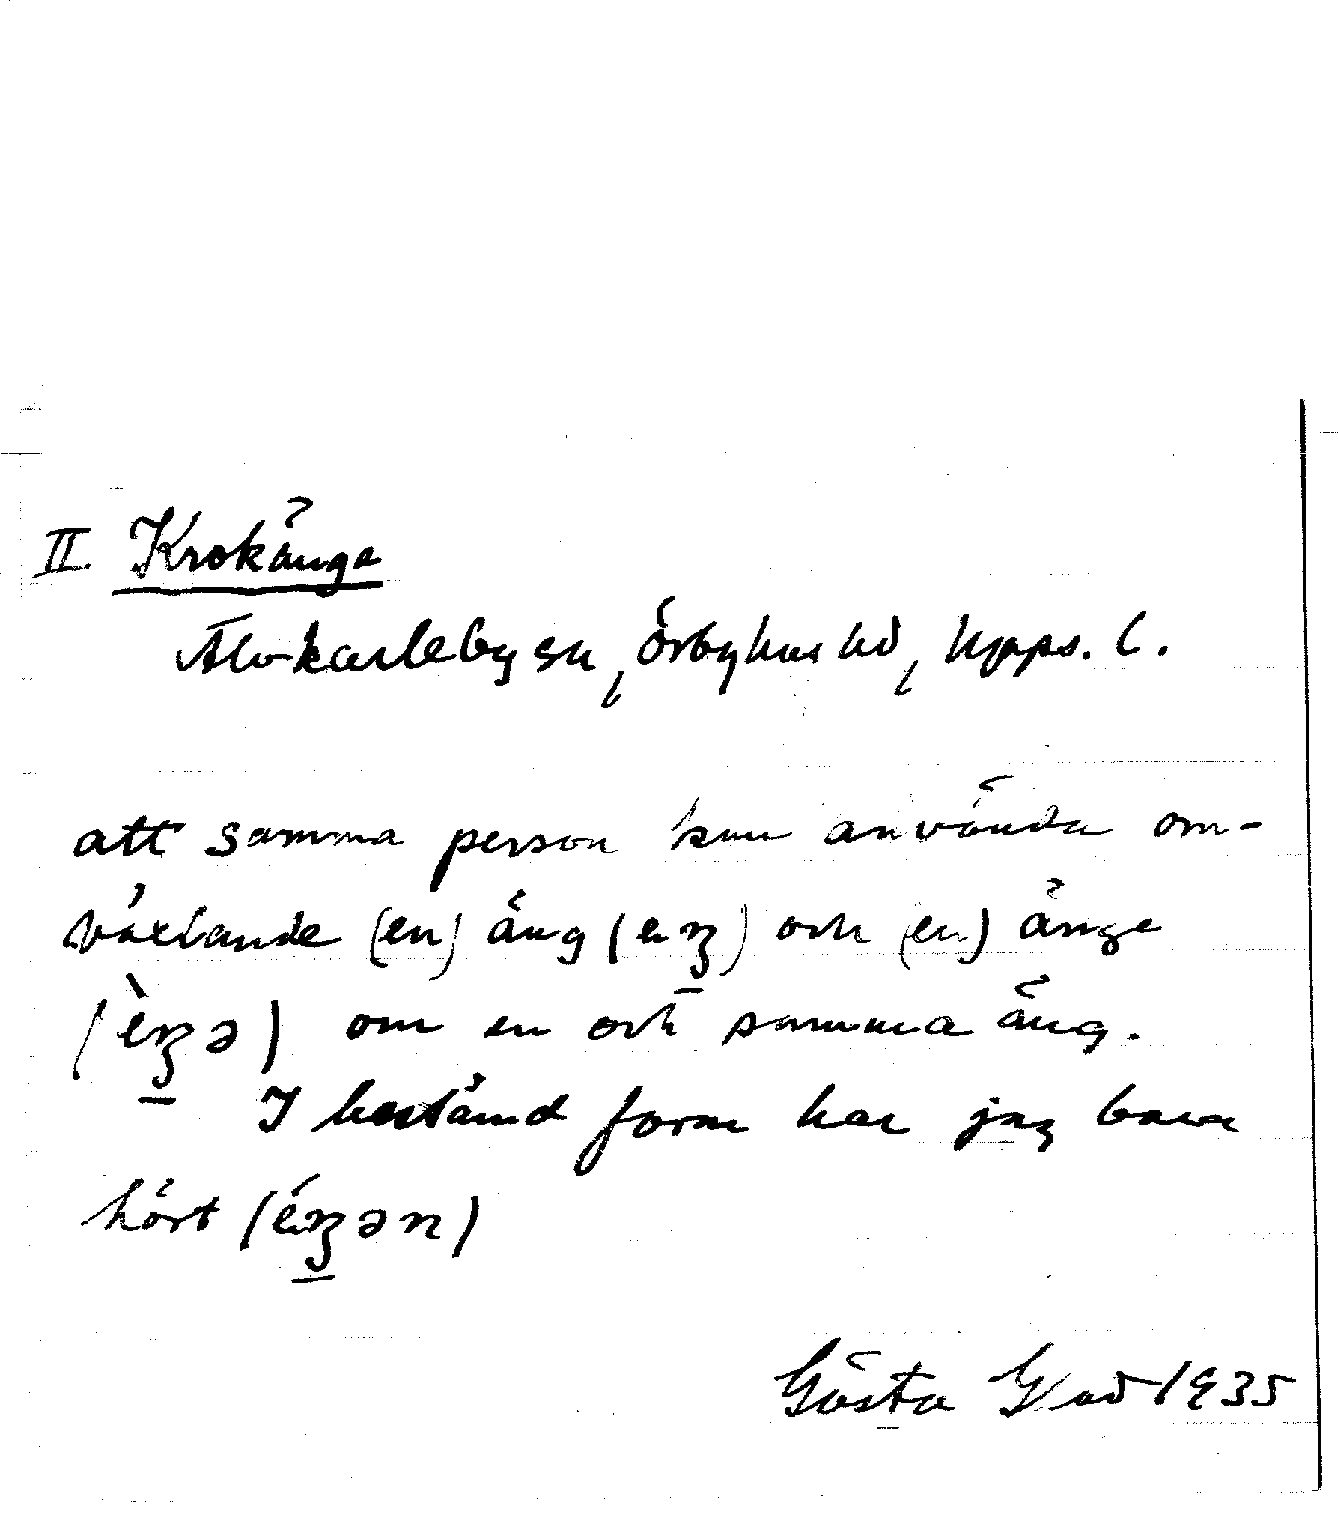 II. Krokänge
Älvkarleby sn, Örbyhus hd, Upps. l.
att samma person kan använda om-
växlande (en) äng (eŋ) och (en) änge
(èŋə) om en och samma äng.
I bestämd form har jag bara
hört (éŋən)
Gösta Glad 1935